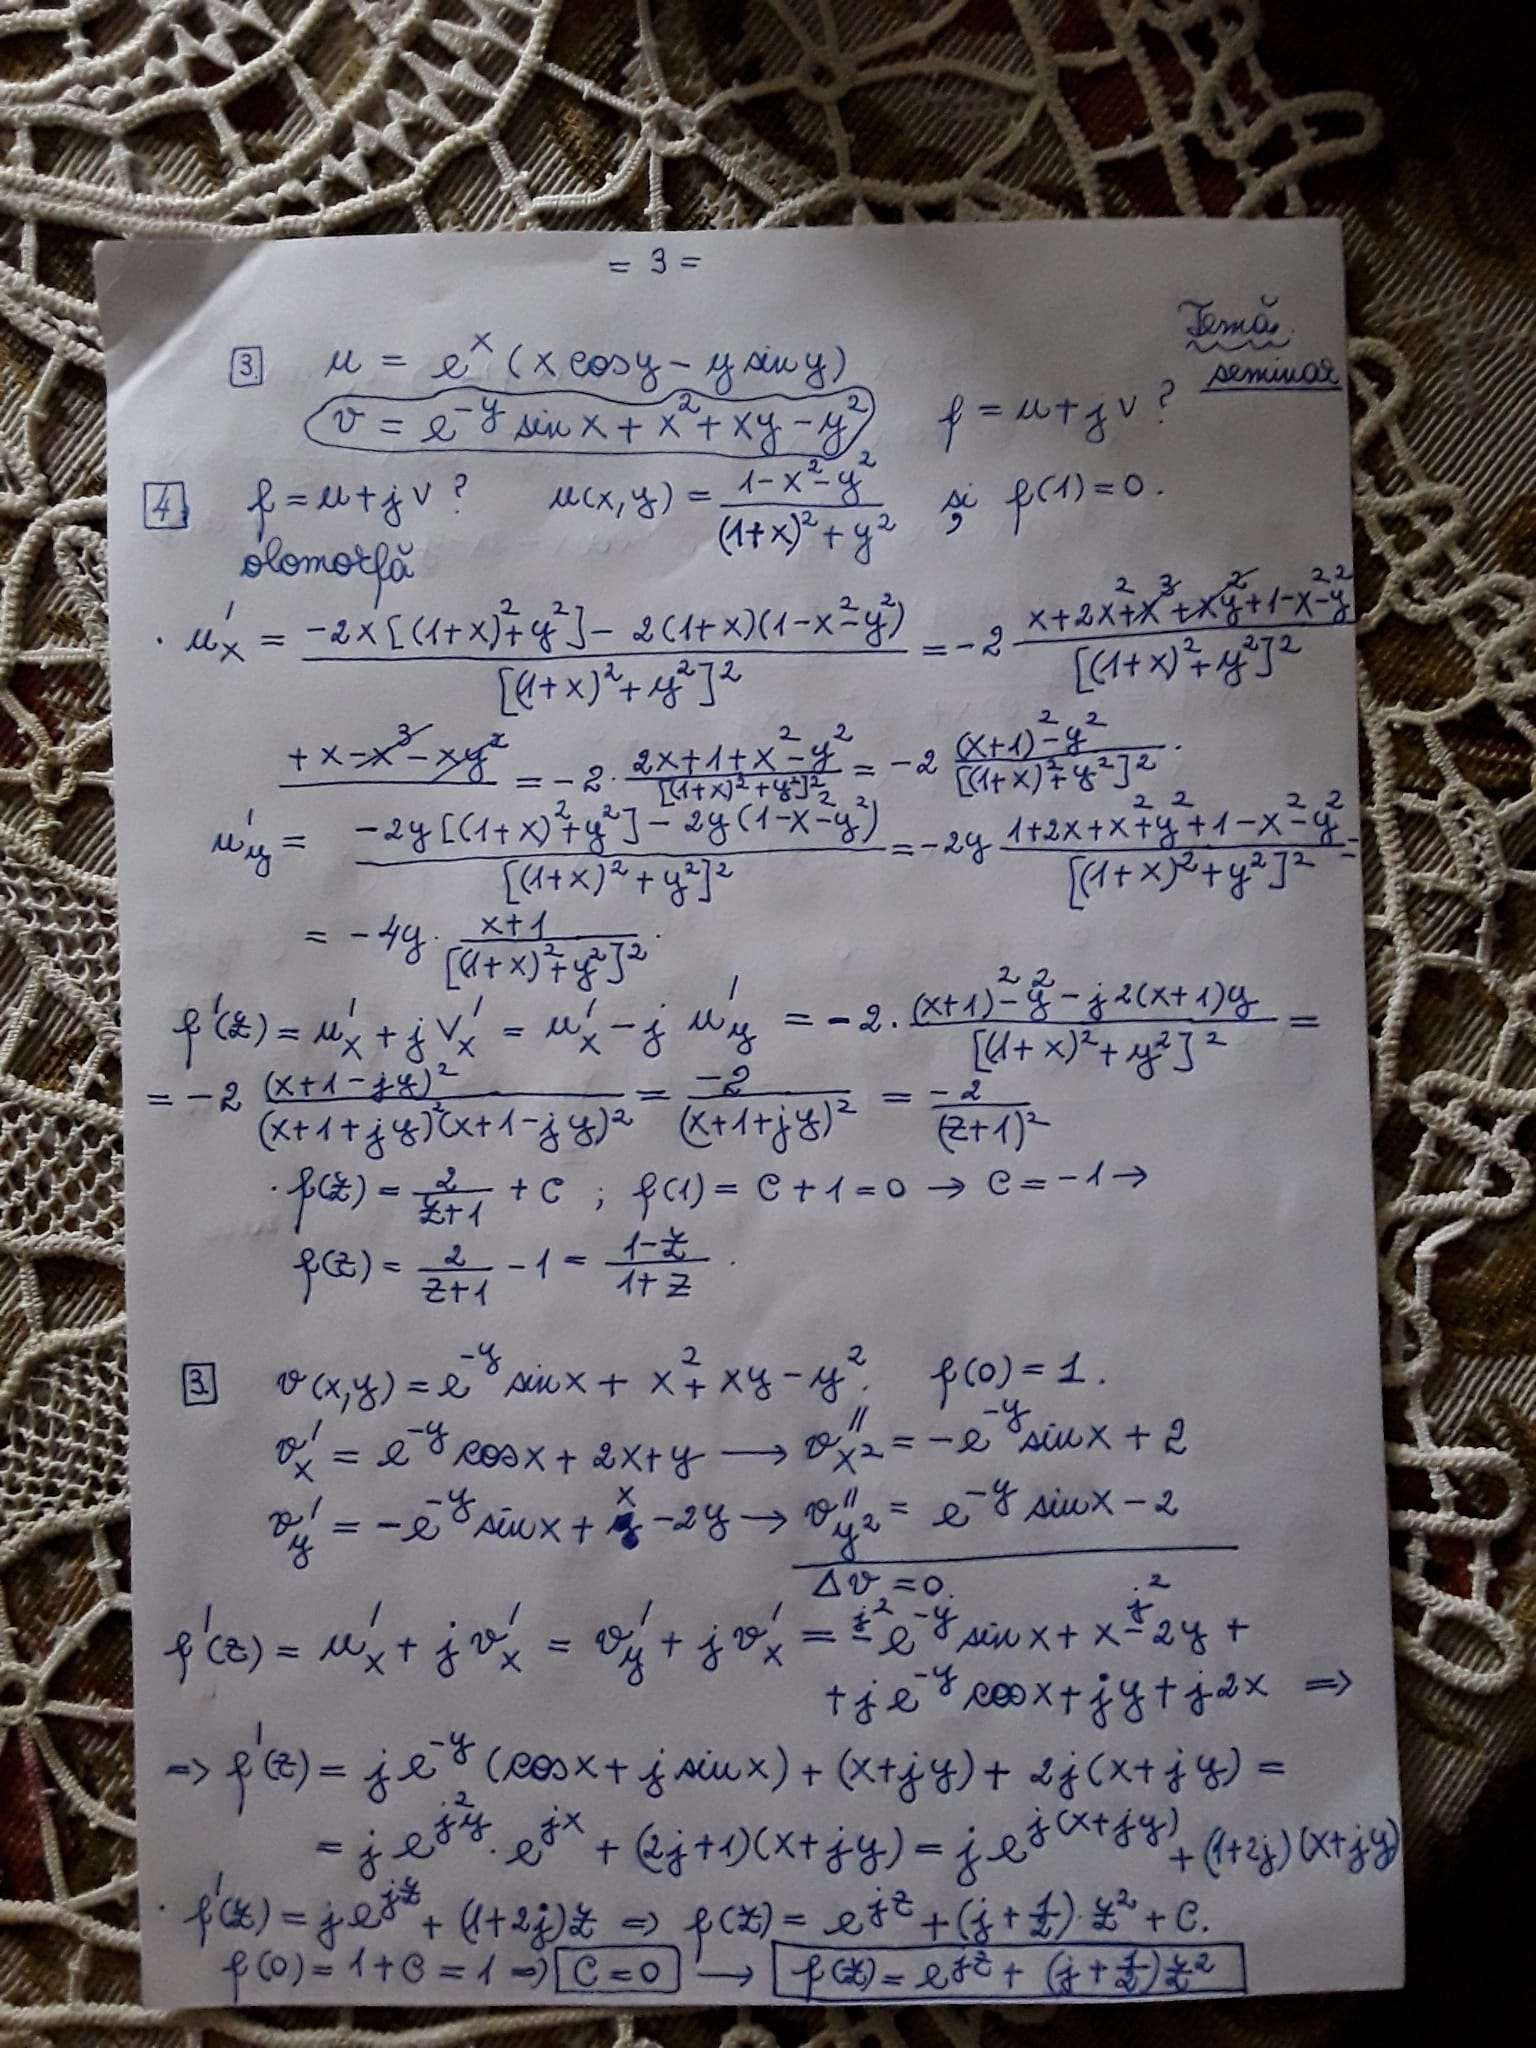 = 3 =
Temă
seminar
3. u = e^x (x cos y - y sin y)
v = e^{-y} sin x + x^2 + xy - y^2   f = u + j v ?
4. f = u + j v ?   u(x,y) = \frac{1-x^2-y^2}{(1+x)^2+y^2} și f(1) = 0.
olomorfă
· u'_x = \frac{-2x[(1+x)^2+y^2] - 2(1+x)(1-x^2-y^2)}{[(1+x)^2+y^2]^2} = -2 \frac{x+2x^2+x^3+xy^2+1-x^2-y^2}{[(1+x)^2+y^2]^2}
+x-x^3-xy^2 = -2 · \frac{2x+1+x^2-y^2}{[(1+x)^2+y^2]^2} = -2 \frac{(x+1)^2-y^2}{[(1+x)^2+y^2]^2}.
u'_y = \frac{-2y[(1+x)^2+y^2] - 2y(1-x^2-y^2)}{[(1+x)^2+y^2]^2} = -2y \frac{1+2x+x^2+y^2+1-x^2-y^2}{[(1+x)^2+y^2]^2} =
= -4y · \frac{x+1}{[(1+x)^2+y^2]^2}.
f'(z) = u'_x + j v'_x = u'_x - j u'_y = -2 · \frac{(x+1)^2-y^2-j2(x+1)y}{[(1+x)^2+y^2]^2} =
= -2 \frac{(x+1-jy)^2}{(x+1+jy)^2(x+1-jy)^2} = \frac{-2}{(x+1+jy)^2} = \frac{-2}{(z+1)^2}
· f(z) = \frac{2}{z+1} + C ; f(1) = C + 1 = 0 → C = -1 →
f(z) = \frac{2}{z+1} - 1 = \frac{1-z}{1+z}.
3. v(x,y) = e^{-y} sin x + x^2 + xy - y^2.   f(0) = 1.
v'_x = e^{-y} cos x + 2x + y → v''_{x^2} = -e^{-y} sin x + 2
v'_y = -e^{-y} sin x + x - 2y → v''_{y^2} = e^{-y} sin x - 2
Δv = 0.
f'(z) = u'_x + j v'_x = v'_y + j v'_x = \overset{j^2}{-} e^{-y} sin x + x \overset{j^2}{-} 2y +
+ j e^{-y} cos x + jy + j2x ⇒
⇒ f'(z) = j e^{-y} (cos x + j sin x) + (x+jy) + 2j(x+jy) =
= j e^{j^2y} · e^{jx} + (2j+1)(x+jy) = j e^{j(x+jy)} + (1+2j)(x+jy)
· f'(z) = j e^{jz} + (1+2j)z ⇒ f(z) = e^{jz} + (j+\frac{1}{2}) · z^2 + C.
f(0) = 1 + C = 1 ⇒ C = 0 → f(z) = e^{jz} + (j+\frac{1}{2})z^2